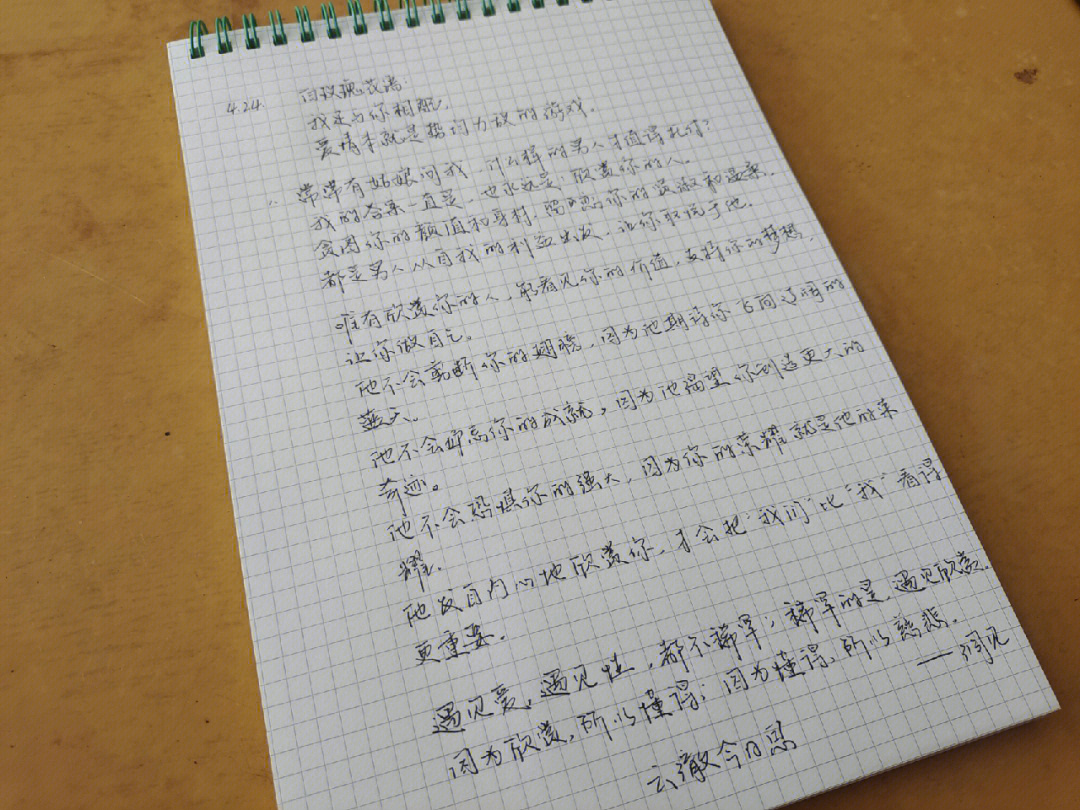 4.24. 白玫瑰花语
我足与你相配.
爱情本就是势均力敌的游戏.
常常有姑娘问我.什么样的男人才值得托付?
我的答案一直是,也永远是 欣赏你的人.
贪图你的颜值和身材,你的贤淑和温柔.
都是男人从自我的利益出发,让你取悦于他.
唯有欣赏你的人,能看见你的价值,支持你的梦想,
让你做自己.
他不会剪断你的翅膀,因为他期待你飞向辽阔的
蓝天.
他不会你的成就,因为他渴望你创造更大的
奇迹。
他不会恐惧你的强大,因为你的荣耀就是他的荣
耀.
他发自内心地欣赏你,才会把"我们"比"我"看得
更重要.
遇见爱,遇见性,都不稀罕;稀罕的是,遇见欣赏.
因为欣赏,所以懂得;因为懂得,所以慈悲.
——洞见
云散今日思